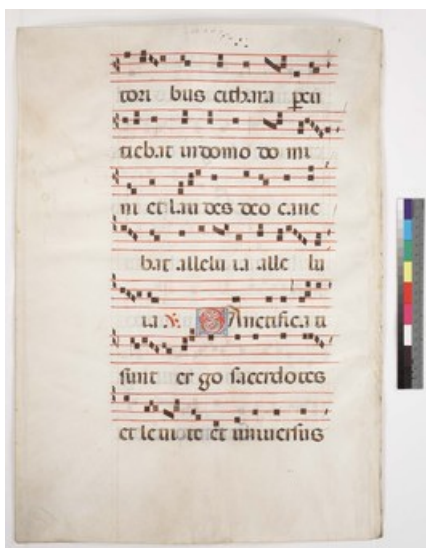 tori bus cithara percu
tiebat in domo do mi
ni et lau des deo cane
bat allelu ia alle lu
ia ℣. Sanctifica ti
sunt er go sacerdotes
et leuite et uniuersus